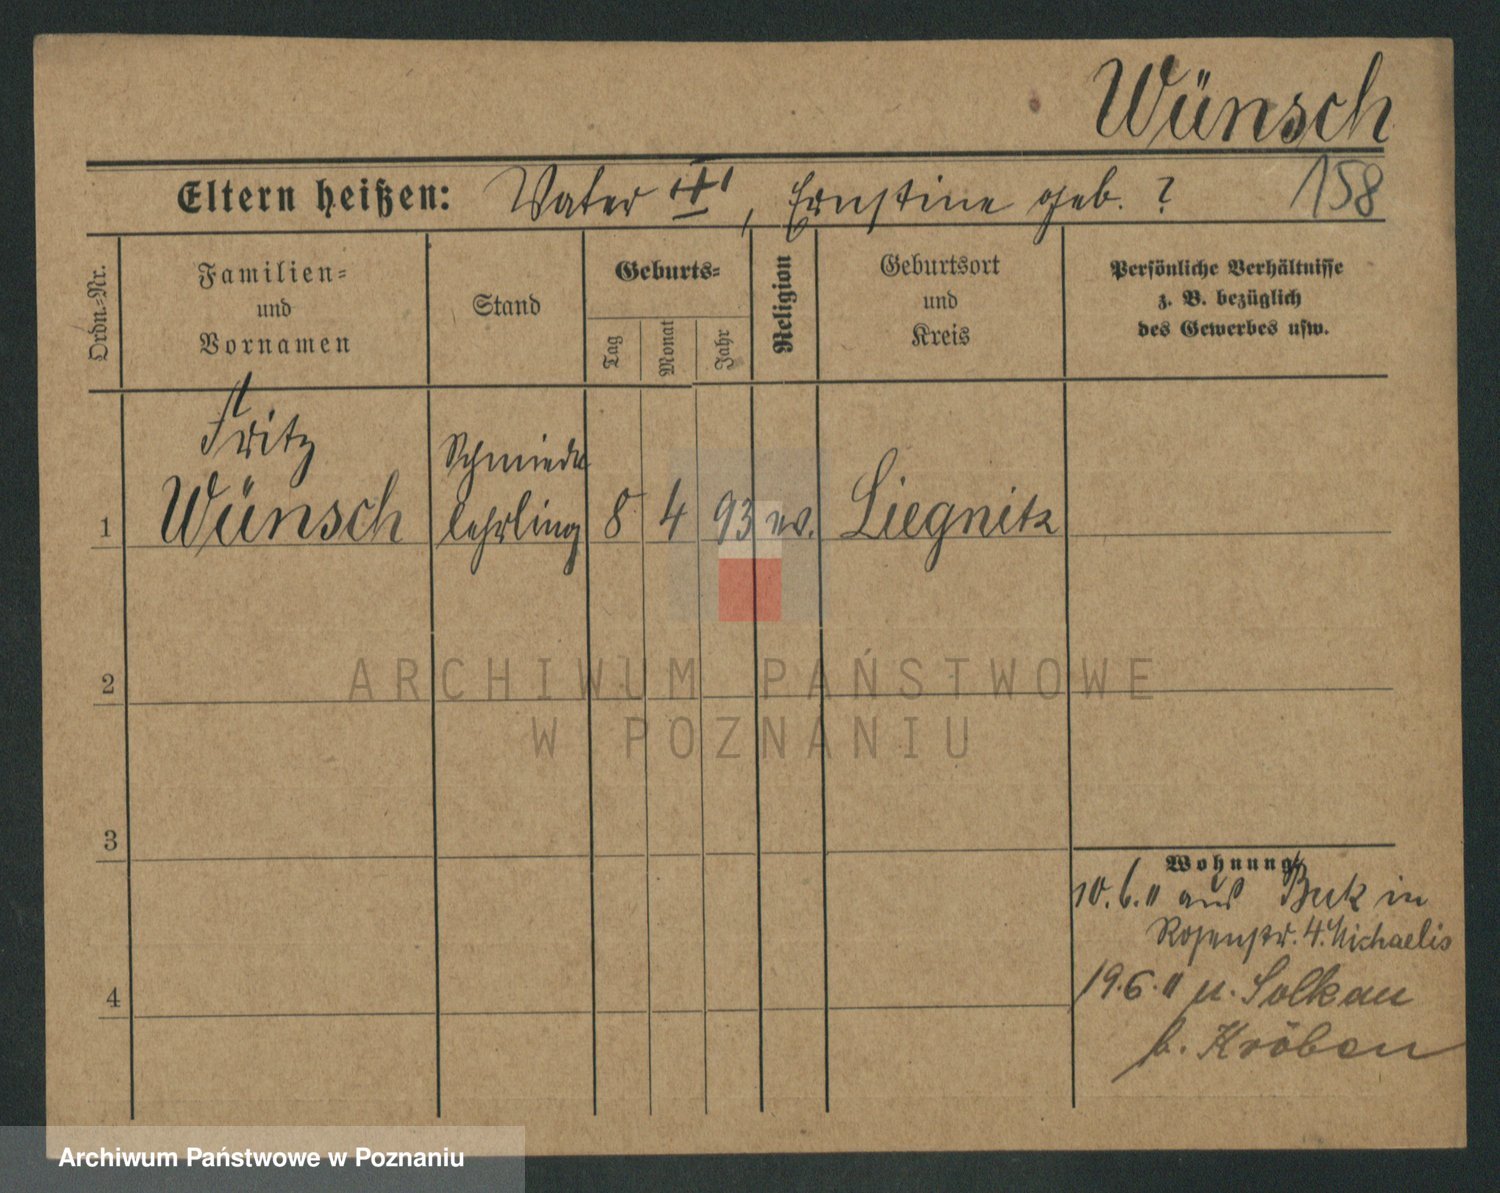 Wünsch
Eltern heißen: Vater "†", Ernstine geb. ? 158
Ordn.-Nr.
Familien-
und
Vornamen
Stand
Geburts-
Tag
Monat
Jahr
Religion
Geburtsort
und
Kreis
Persönliche Verhältnisse
z. B. bezüglich
des Gewerbes usw.
Fritz
Schmiede
1 Wünsch lehrling 8 4 93 ev. Liegnitz
2
ARCHIWUM PAŃSTWOWE
W POZNANIU
3
Wohnung
10.6.11 aus Buk in
Rosenstr. 4. Michaelis
19.6.11 n. Solkau
4
b. Kröben
Archiwum Państwowe w Poznaniu